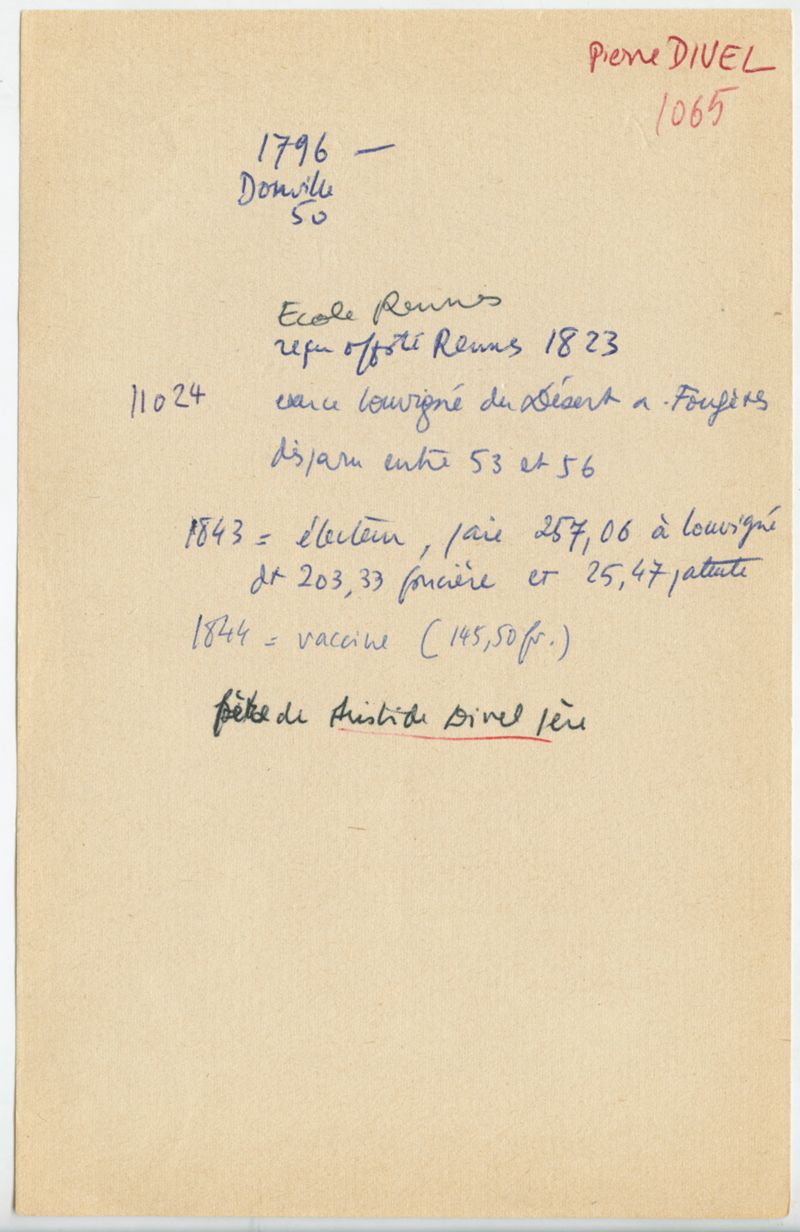 Pierre DIVEL
1065
1796 —
Donville
50
Ecole Rennes
reçu offté Rennes 1823
11 0 24 exerce Louvigné du Désert a. Fougères
disparu entre 53 et 56
1843 = électeur, paie 257,06 à Louvigné
dt 203,33 foncière et 25,47 patente
1844 = vaccine (145,50 fr.)
de Aristide Divel père